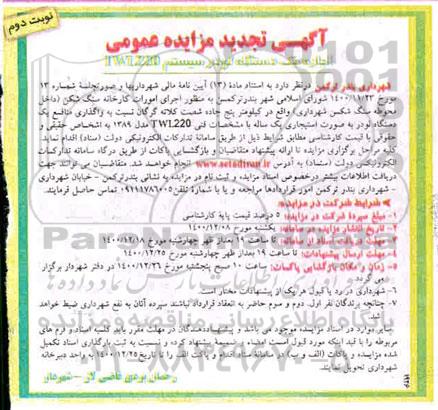 نوبت دوم
آگهی تجدید مزایده عمومی
اجاره یک دستگاه لودر سیستم TWL220
شهرداری بندر ترکمن در نظر دارد به استناد ماده (۱۳) آیین نامه مالی شهرداریها و صورتجلسه شماره ۱۳
مورخ ۱۴۰۰/۱۱/۲۳ شورای اسلامی شهر بندرترکمن به منظور اجرای امورات کارخانه سنگ شکن (داخل
محوطه سنگ شکن شهرداری) واقع در کیلومتر پنج جاده شصت کلاته گرگان نسبت به واگذاری منافع یک
دستگاه لودر به صورت استیجاری یک ساله با مشخصات فنی TWL220 مدل ۱۳۸۹ به اشخاص حقیقی و
حقوقی با قیمت کارشناسی مطابق شرایط ذیل از طریق سامانه تدارکات الکترونیکی دولت (ستاد) اقدام نماید.
کلیه مراحل برگزاری مزایده تا ارائه پیشنهاد متقاضیان و بازگشایی پاکات از طریق درگاه سامانه تدارکات
الکترونیکی دولت (ستاد) به آدرس www.setadiran.ir انجام خواهد شد. متقاضیان می توانند جهت
دریافت اطلاعات بیشتر درخصوص اسناد مزایده و ثبت نام در مزایده به نشانی بندرترکمن - خیابان شهرداری
- شهرداری بندر ترکمن امور قراردادها مراجعه و یا با شماره تلفن حاصل فرمایند.
شرایط شرکت در مزایده:
۱- مبلغ سپرده شرکت در مزایده: ۵ درصد قیمت پایه کارشناسی
۲- تاریخ انتشار مزایده در سامانه: یکشنبه مورخ ۱۴۰۰/۱۲/۰۸
۳- مهلت دریافت اسناد از سامانه: تا ساعت ۱۹ بعداز ظهر چهارشنبه مورخ ۱۴۰۰/۱۲/۱۸
۴- مهلت ارسال پیشنهادات: تا ساعت ۱۹ بعداز ظهر چهارشنبه مورخ ۱۴۰۰/۱۲/۲۵
۵- زمان و مکان بازگشایی پاکات: ساعت ۱۰ صبح پنجشنبه مورخ ۱۴۰۰/۱۲/۲۶ در دفتر شهردار برگزار
می گردد.
۶- شهرداری در رد یا قبول هر یک از پیشنهادات مختار است.
۷- چنانچه برندگان نفر اول، دوم و سوم حاضر به انعقاد قرارداد نباشند سپرده آنان به نفع شهرداری ضبط خواهد
شد.
سایر موارد در اسناد مزایده موجود می باشد و پیشنهاددهندگان در مهلت مقرر باید کلیه اسناد و فرم های
مربوطه را با قید اینکه مورد قبول است امضاء و ضمیمه پیشنهاد کرده و نسبت به ثبت بارگذاری اسناد تکمیل
شده مزایده و پاکات (الف و ب) در سامانه ستاد اقدام و پاکت الف را تا تاریخ ۱۴۰۰/۱۲/۲۵ به واحد دبیرخانه
شهرداری تحویل نمایند.
رحمان بردی قاضی لار - شهردار